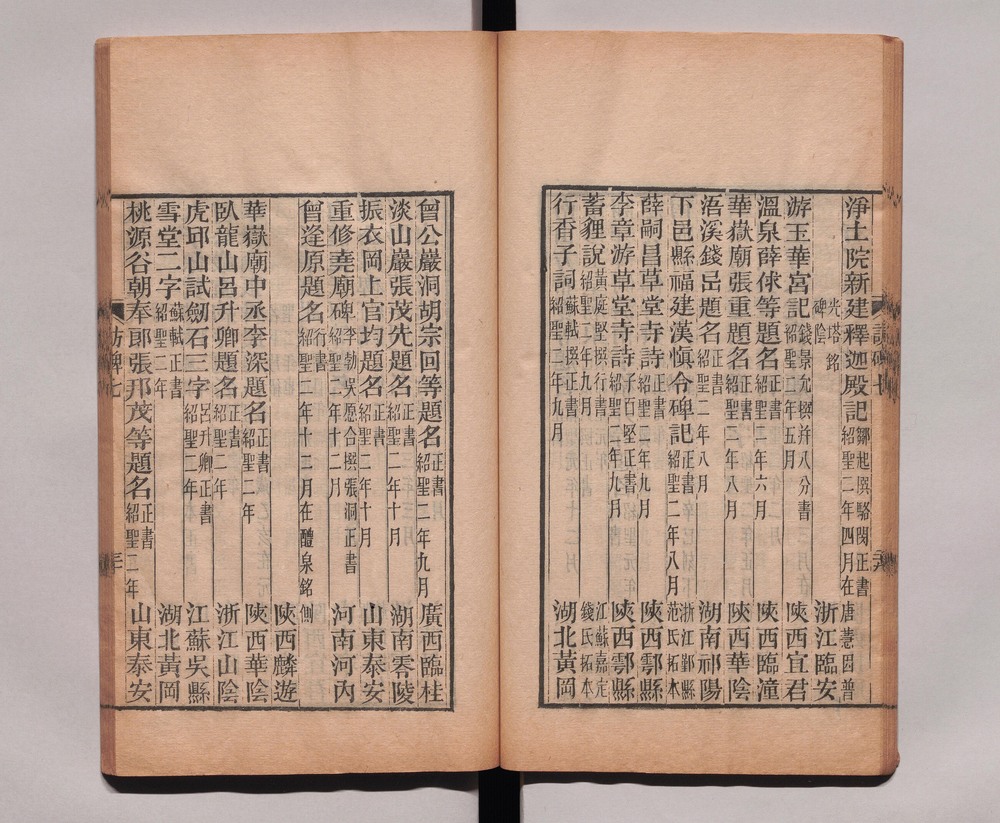 淨土院新建釋迦殿記鄒起撰駱閎正書紹聖二年四月在唐慧因普
光塔銘碑陰 浙江臨安
游玉華宮記錢景允撰并八分書紹聖二年五月 陝西宜君
溫泉薛俅等題名正書紹聖二年六月 陝西臨潼
華嶽廟張重題名正書紹聖二年八月 陝西華陰
浯溪錢岊題名正書紹聖二年八月 湖南祁陽
下邑縣福建漢愼令碑記正書紹聖二年八月 浙江鄞縣范氏拓本
薛嗣昌草堂寺詩正書紹聖二年九月 陝西鄠縣
李章游草堂寺詩子百堅正書紹聖二年九月 陝西鄠縣
蓄貍說黃庭堅撰行書紹聖二年九月 江蘇嘉定錢氏拓本
行香子詞蘇軾撰正書紹聖二年九月 湖北黃岡
曾公巖洞胡宗回等題名正書紹聖二年九月 廣西臨桂
淡山巖張茂先題名正書紹聖二年十月 湖南零陵
振衣岡上官均題名正書紹聖二年十月 山東泰安
重修堯廟碑李勃吳愿合撰張洞正書紹聖二年十一月 河南河內
曾逢原題名行書紹聖二年十二月在醴泉銘側
陝西麟遊
華嶽廟中丞李深題名正書紹聖二年 陝西華陰
臥龍山呂升卿題名正書紹聖二年 浙江山陰
虎邱山試劒石三字呂升卿正書紹聖二年 江蘇吳縣
雪堂二字蘇軾正書紹聖二年 湖北黃岡
桃源谷朝奉郎張邦茂等題名正書紹聖二年 山東泰安
訪碑七